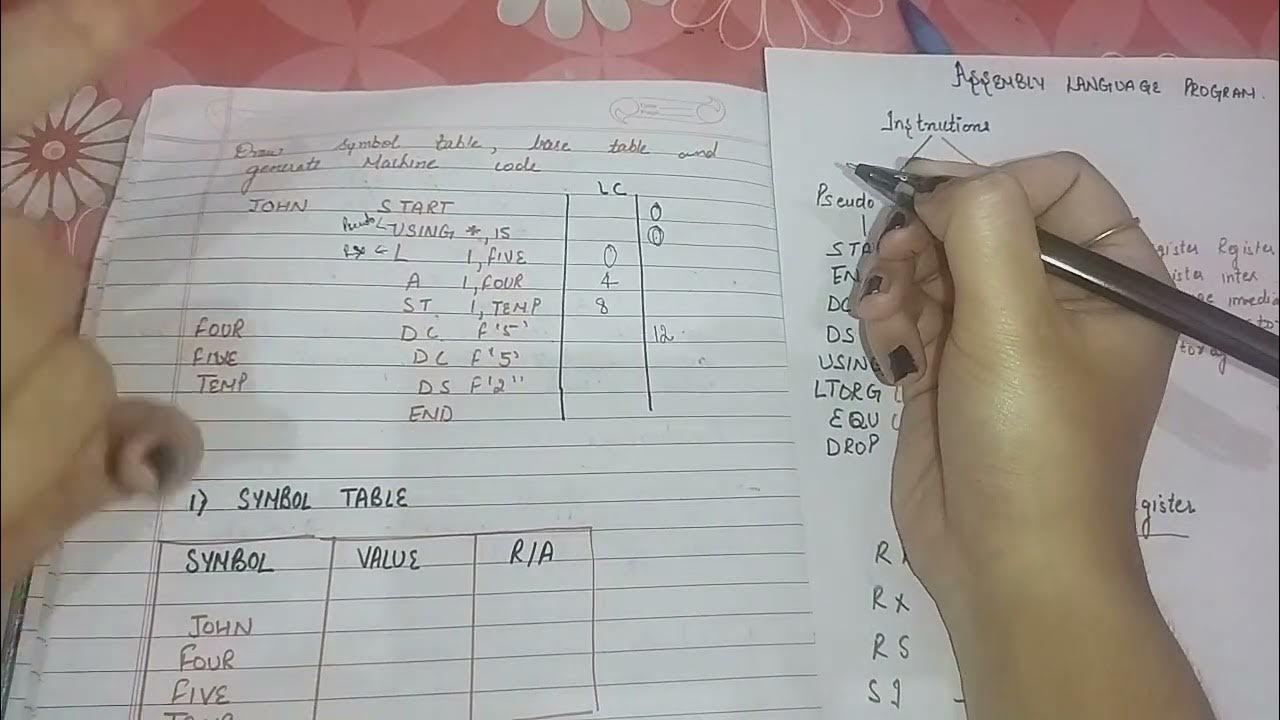 Draw symbol table, base table and
generate Machine code
LC
JOHN START 0
Pseudo < USING *, 15 0
RX < L 1, FIVE 0
A 1, FOUR 4
ST 1, TEMP 8
FOUR DC F'5' 12
FIVE DC F'5'
TEMP DS F'2''
END
1) SYMBOL TABLE
SYMBOL VALUE R/A
JOHN
FOUR
FIVE
ASSEMBLY LANGUAGE PROGRAM.
Instructions
Pseudo
Register Register
USING
LTORG
EQU
DROP
DS
RX
RS
SI